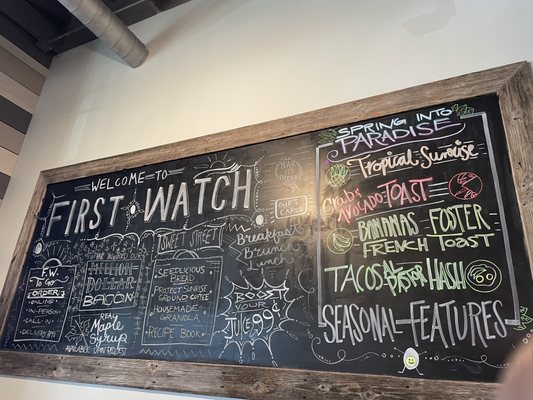 WELCOME TO
FIRST WATCH
F.W.
TO GO
ORDER:
ONLINE
IN-PERSON
CALL-IN
DELIVERY APP
MILLION
DOLLAR
BACON
REAL
MAPLE
SYRUP
AVAILABLE UPON REQUEST
SWEET STREET
SEEDLICIOUS
BREAD
PROJECT SUNRISE
GROUND COFFEE
HOUSEMADE
GRANOLA
RECIPE BOOK
GIFT
CARD
Breakfast
Brunch
Lunch
BOOST
YOUR
JUICE 99¢
SPRING INTO
PARADISE
Tropical Sunrise
CRAB &
AVOCADO TOAST
BANANAS FOSTER
FRENCH TOAST
TACOS AL PASTOR HASH
SEASONAL FEATURES